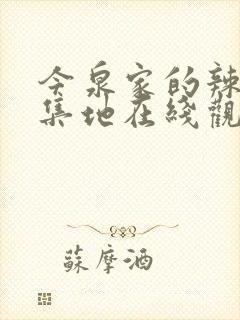 今泉家的辣
集地在綫觀
蘇摩酒